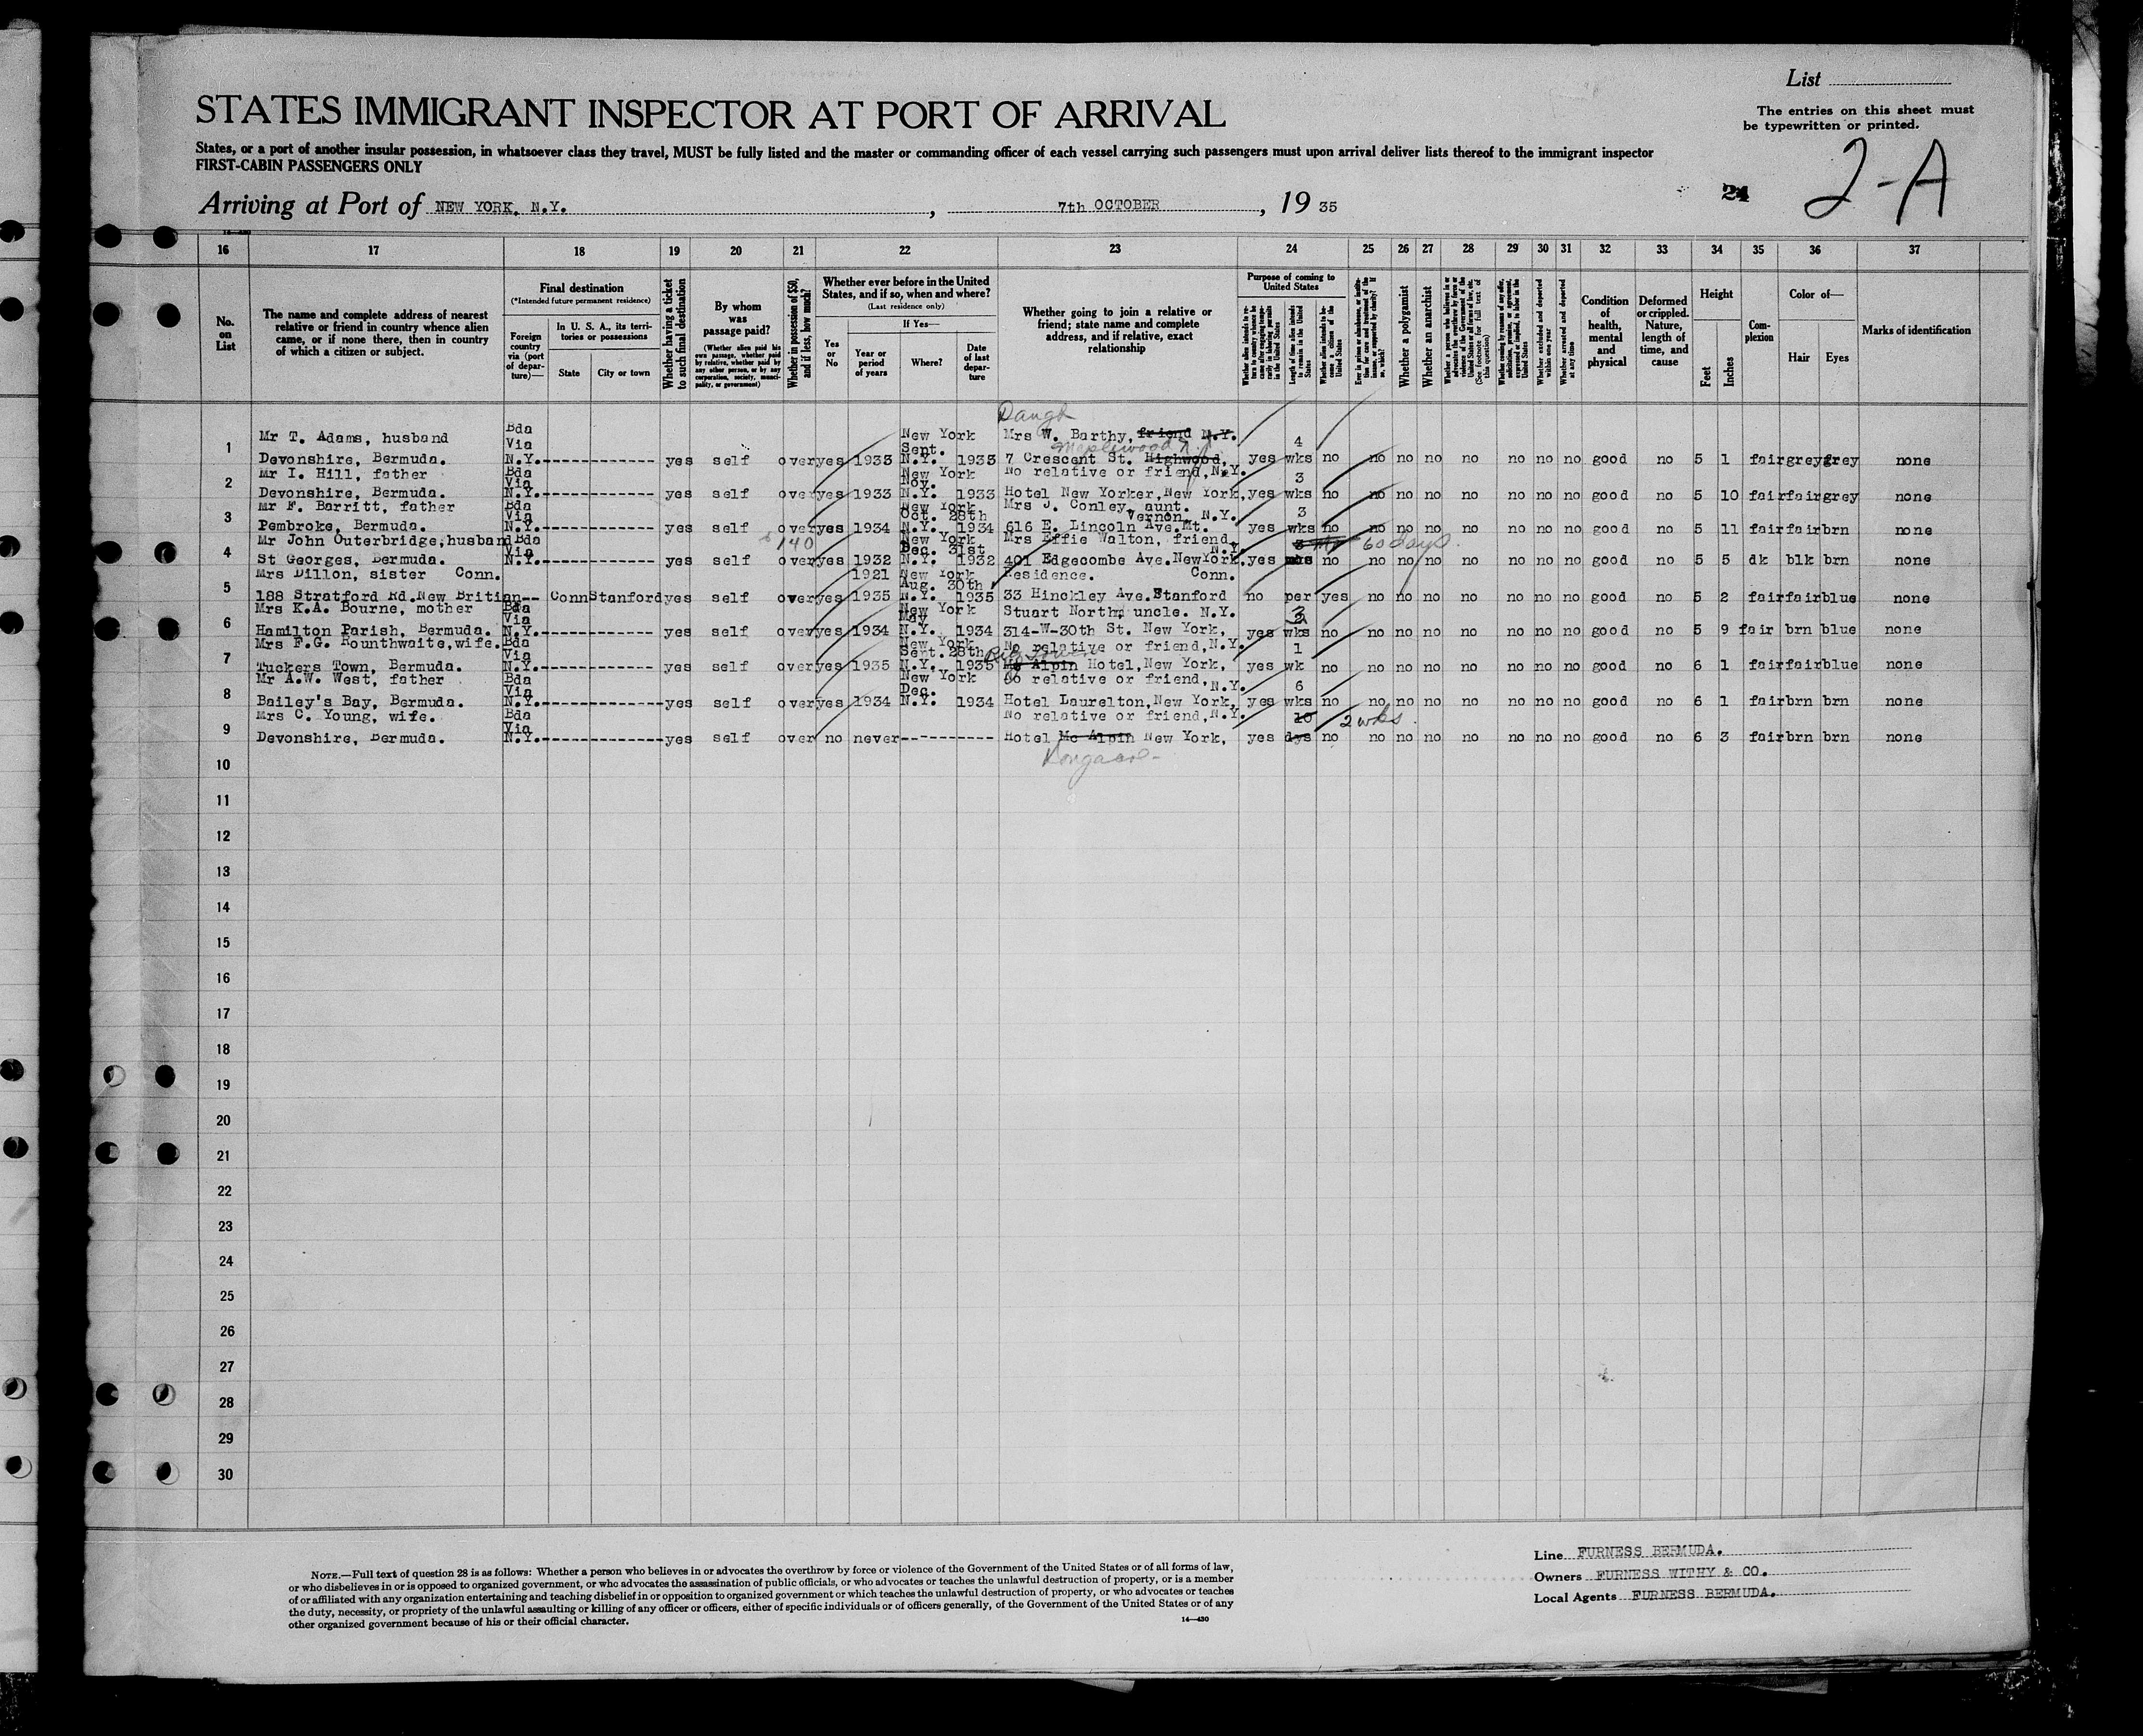 List
STATES IMMIGRANT INSPECTOR AT PORT OF ARRIVAL
The entries on this sheet must
be typewritten or printed.
States, or a port of another insular possession, in whatsoever class they travel, MUST be fully listed and the master or commanding officer of each vessel carrying such passengers must upon arrival deliver lists thereof to the immigrant inspector
FIRST-CABIN PASSENGERS ONLY
24 2-A
Arriving at Port of NEW YORK, N.Y., 7th OCTOBER, 19 35
16 17 18 19 20 21 22 23 24 25 26 27 28 29 30 31 32 33 34 35 36 37
No. on List
The name and complete address of nearest relative or friend in country whence alien came, or if none there, then in country of which a citizen or subject.
Final destination
(*Intended future permanent residence)
Foreign country via (port of departure)—
In U. S. A., its territories or possessions
State
City or town
Whether having a ticket to such final destination
By whom was passage paid?
(Whether alien paid his own passage, whether paid by relative, whether paid by any other person, or by any corporation, society, municipality, or government)
Whether in possession of $50, and if less, how much?
Whether ever before in the United States, and if so, when and where?
(Last residence only)
Yes or No
If Yes—
Year or period of years
Where?
Date of last departure
Whether going to join a relative or friend; state name and complete address, and if relative, exact relationship
Purpose of coming to United States
Length of time alien intends to remain in the United States
Whether alien intends to become a citizen of the United States
Whether a polygamist
Whether an anarchist
(See footnote for full text of this question)
Whether excluded and deported within one year
Whether arrested and deported at any time
Condition of health, mental and physical
Deformed or crippled. Nature, length of time, and cause
Height
Feet
Inches
Complexion
Color of—
Hair
Eyes
Marks of identification
Daugh
1 Mr T. Adams, husband Bda New York Mrs W. Barthy, friend N.Y. 4
Via Sent. Maplewood N.J.
Devonshire, Bermuda. N.Y. yes self over yes 1933 N.Y. 1933 7 Crescent St. Highwood, yes wks no no no no no no no no good no 5 1 fair grey grey none
2 Mr I. Hill, father Bda New York No relative or friend, N.Y. 3
Via Nov.
Devonshire, Bermuda. N.Y. yes self over yes 1933 N.Y. 1933 Hotel New Yorker, New York, yes wks no no no no no no no no good no 5 10 fair fair grey none
3 Mr F. Barritt, father Bda New York Mrs J. Conley, aunt. 3
Via Oct. 28th Vernon, N.Y.
Pembroke, Bermuda. N.Y. yes self over yes 1934 N.Y. 1934 616 E. Lincoln Ave. Mt. yes wks no no no no no no no no good no 5 11 fair fair brn none
4 Mr John Outerbridge, husband Bda 140 New York Mrs Effie Walton, friend, 3 60 days.
Via Dec. 31st N.Y.
St Georges, Bermuda. N.Y. yes self over yes 1932 N.Y. 1932 401 Edgecombe Ave. New York, yes no no no no no no no no good no 5 5 dk blk brn none
5 Mrs Dillon, sister Conn. 1921 New York Residence. Conn.
Aug. 30th
188 Stratford Rd. New Britian-- Conn Stanford yes self over yes 1935 N.Y. 1935 33 Hinckley Ave. Stanford no per yes no no no no no no no good no 5 2 fair fair blue none
6 Mrs K.A. Bourne, mother Bda New York Stuart North, uncle. N.Y. 3
Via May
Hamilton Parish, Bermuda. N.Y. yes self over yes 1934 N.Y. 1934 314-W-30th St. New York, yes wks no no no no no no no no good no 5 9 fair brn blue none
7 Mrs F.G. Rounthwaite, wife. Bda New York No relative or friend, N.Y. 1
Via Sent. 28th
Tuckers Town, Bermuda. N.Y. yes self over yes 1935 N.Y. 1935 Mc Alpin Hotel, New York, yes wk no no no no no no no no good no 6 1 fair fair blue none
8 Mr A.W. West, father Bda New York No relative or friend, N.Y. 6
Via Dec.
Bailey's Bay, Bermuda. N.Y. yes self over yes 1934 N.Y. 1934 Hotel Laurelton, New York, yes wks no no no no no no no no good no 6 1 fair brn brn none
9 Mrs C. Young, wife. Bda No relative or friend, N.Y. 10 2 wks.
Via
Devonshire, Bermuda. N.Y. yes self over no never Hotel Mc Alpin New York, yes dys no no no no no no no no good no 6 3 fair brn brn none
10
11
12
13
14
15
16
17
18
19
20
21
22
23
24
25
26
27
28
29
30
NOTE.—Full text of question 28 is as follows: Whether a person who believes in or advocates the overthrow by force or violence of the Government of the United States or of all forms of law,
or who disbelieves in or is opposed to organized government, or who advocates the assassination of public officials, or who advocates or teaches the unlawful destruction of property, or is a member
of or affiliated with any organization entertaining and teaching disbelief in or opposition to organized government or which teaches the unlawful destruction of property, or who advocates or teaches
the duty, necessity, or propriety of the unlawful assaulting or killing of any officer or officers, either of specific individuals or of officers generally, of the Government of the United States or of any
other organized government because of his or their official character.
14—430
Line FURNESS BERMUDA.
Owners FURNESS WITHY & CO.
Local Agents FURNESS BERMUDA.